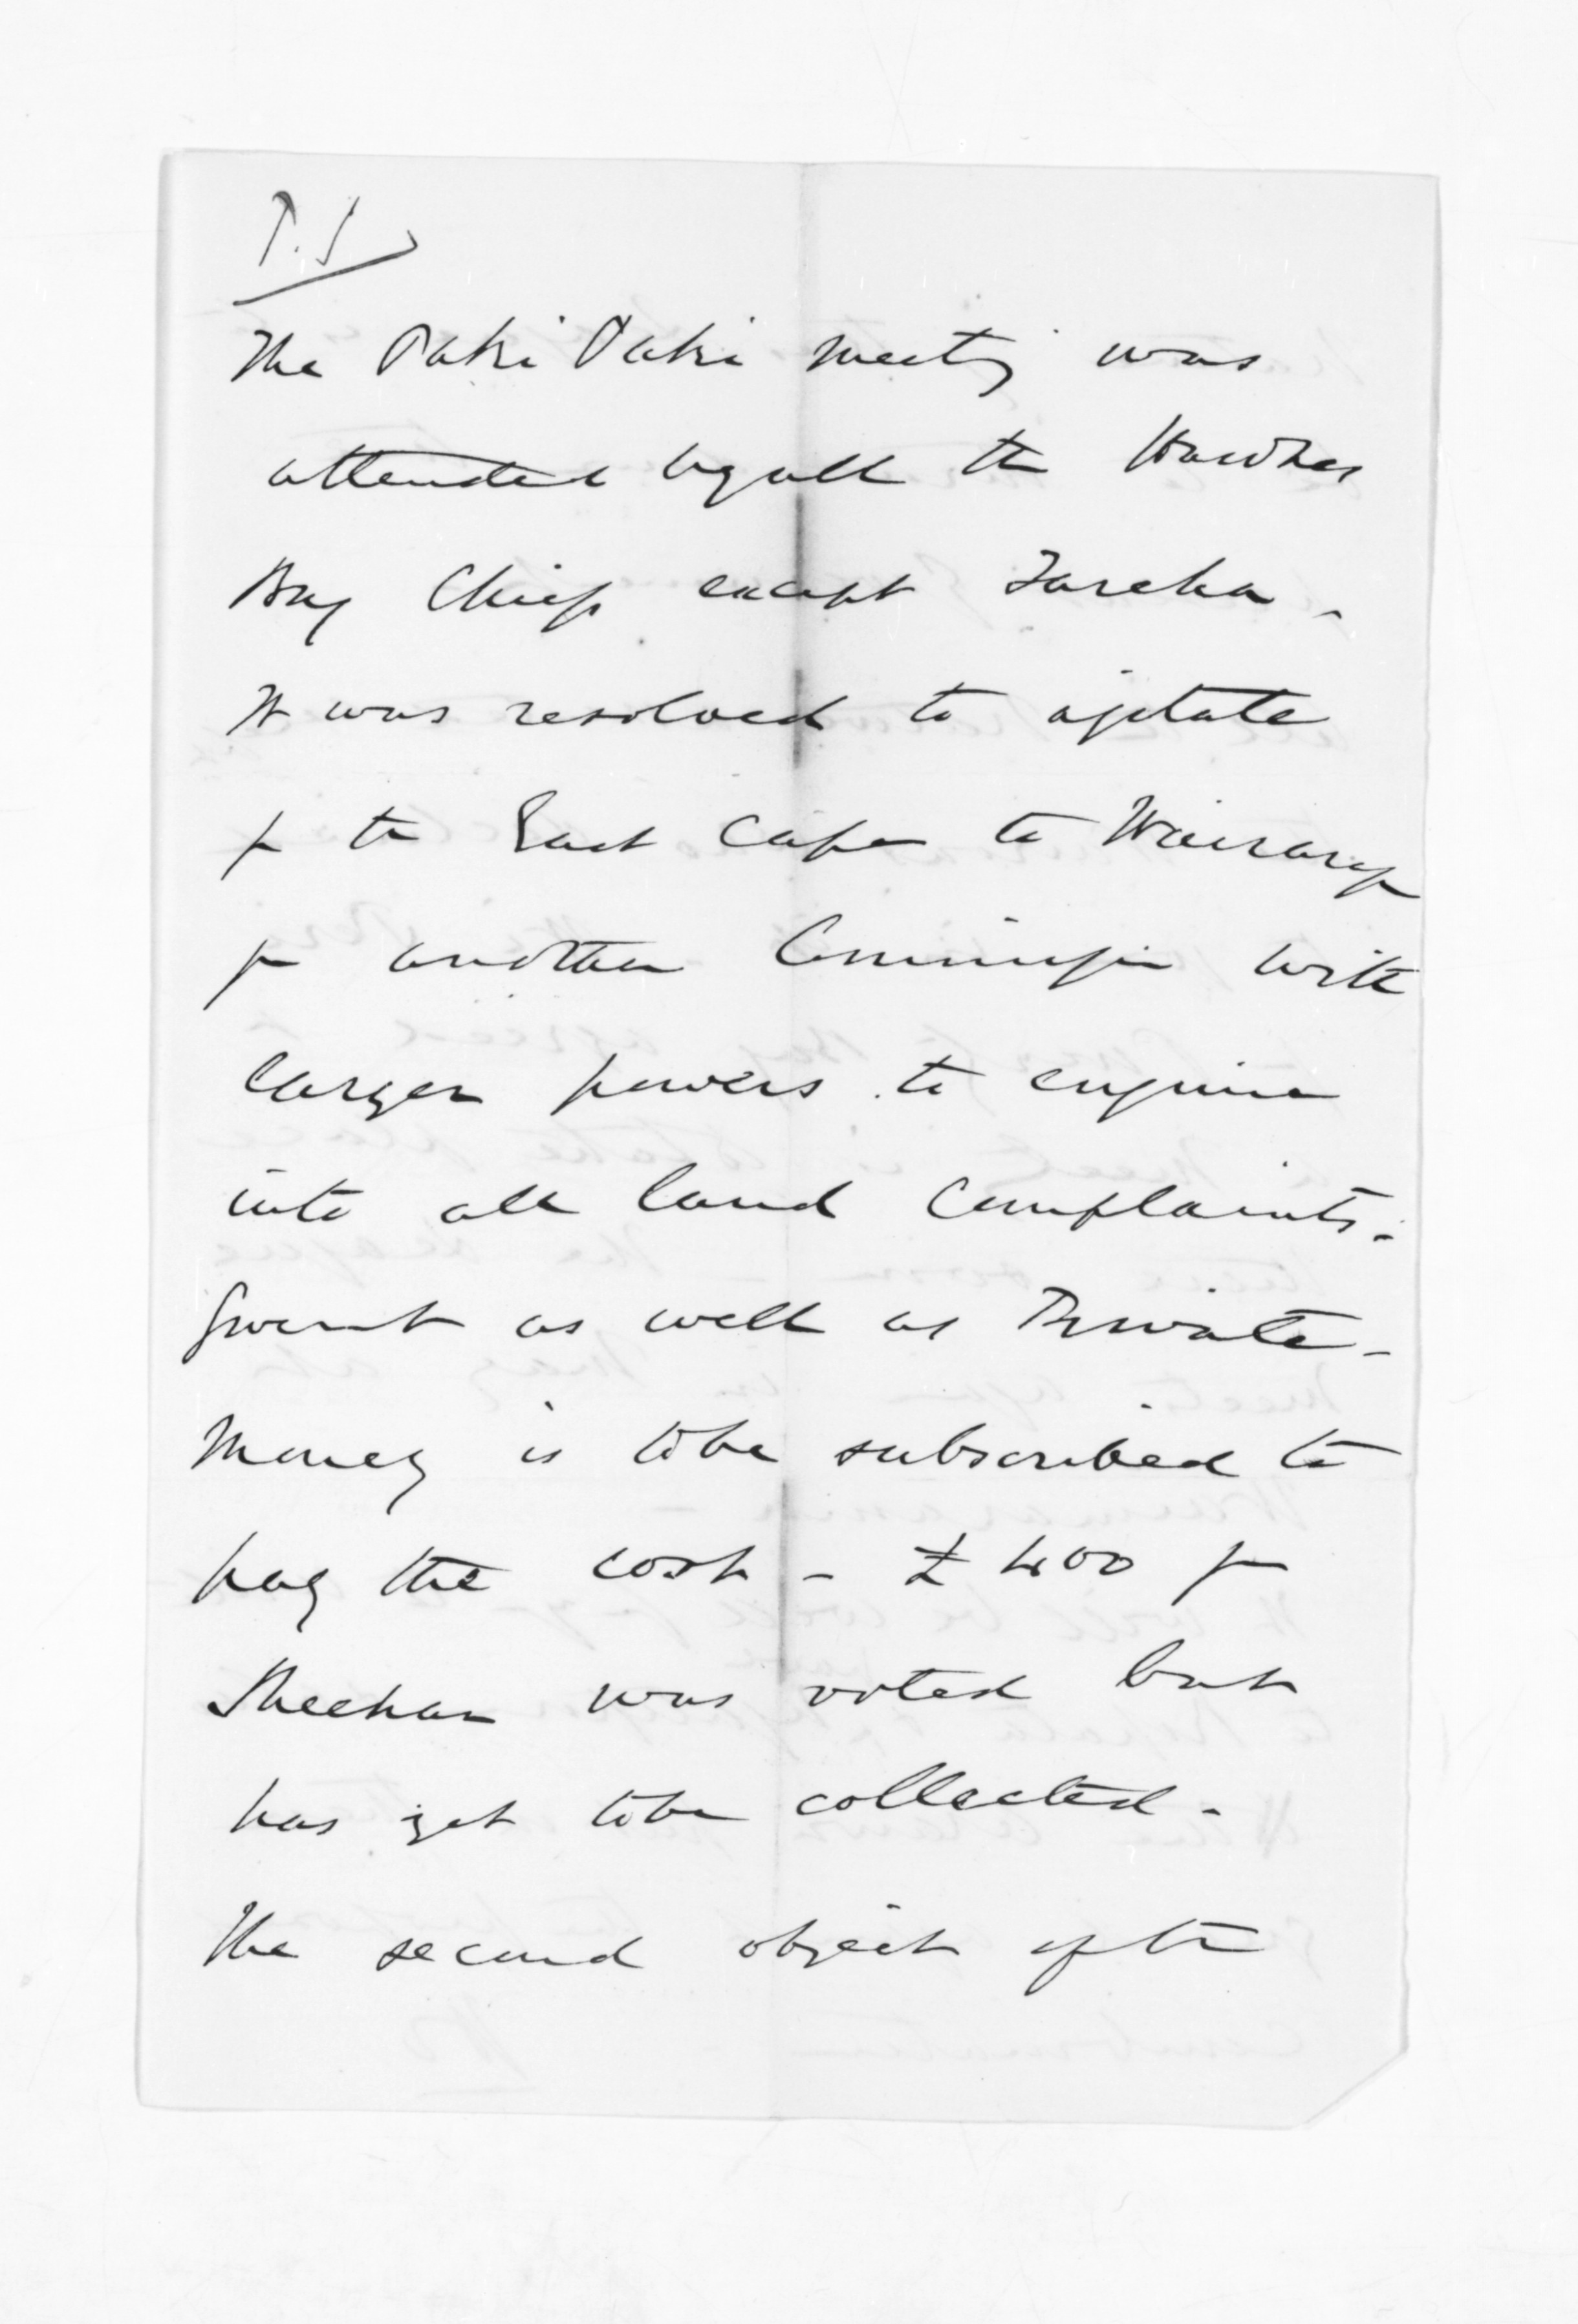 P.S
The Paki Paki meeting was
attended by all the Hawkes
Bay Chiefs except Tareha -
It was resolved to agitate
fr the East Cape to Wairarapa
for another Commission with
larger powers to enquire
into all land complaints -
Govmt as well as Private -
Money is to be subscribed to
pay the cost - £400 for
Sheehan was voted but
has yet to be collected -
The second object of the